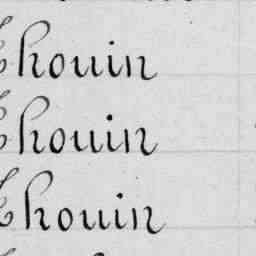 Thouin
Thouin
Thouin